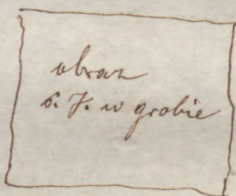 obraz
ś. J. w grobie